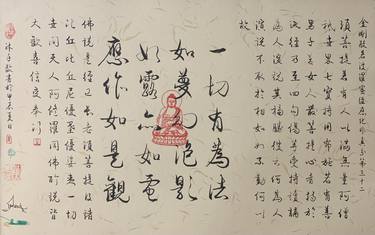 金剛般若波羅蜜經應化非真分第三十二
須菩提若有人以滿無量阿僧
祇世界七寶持用布施若有善
男子善女人發菩提心者持於
此經乃至四句偈等受持讀誦
為人演說其福勝彼云何為人
演說不取於相如如不動何以
故
一切有為法
如夢幻泡影
如露亦如電
應作如是觀
佛說是經已長老須菩提及諸
比丘比丘尼優婆塞優婆夷一切
世間天人阿修羅聞佛所說皆
大歡喜信受奉行
書於甲辰夏日